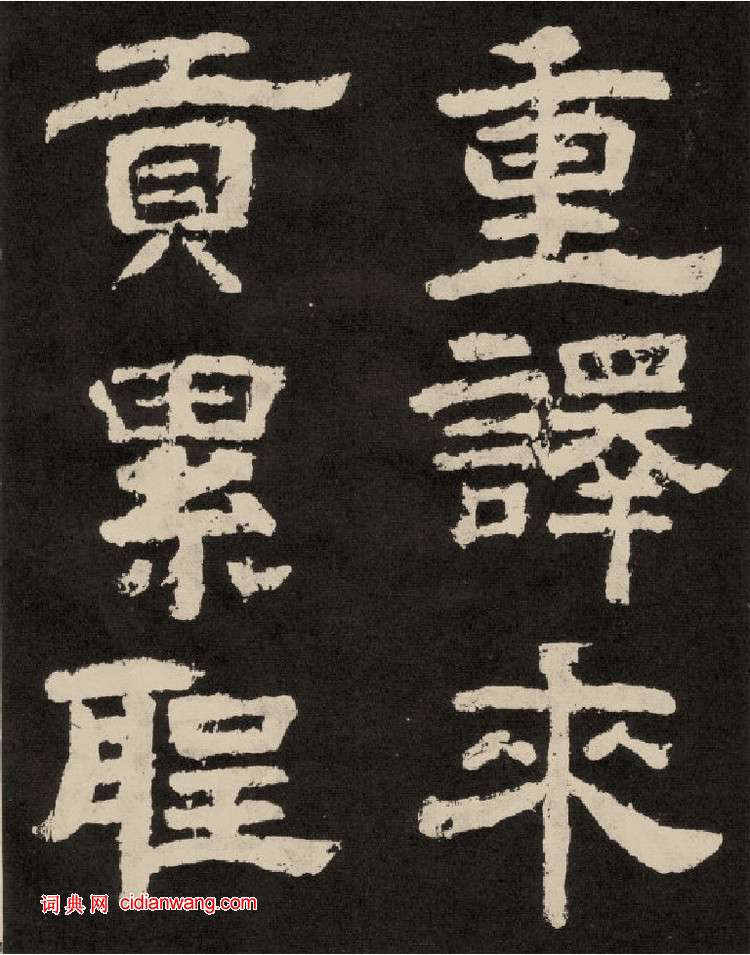 重譯來
貢累聖
词典网 cidianwang.com